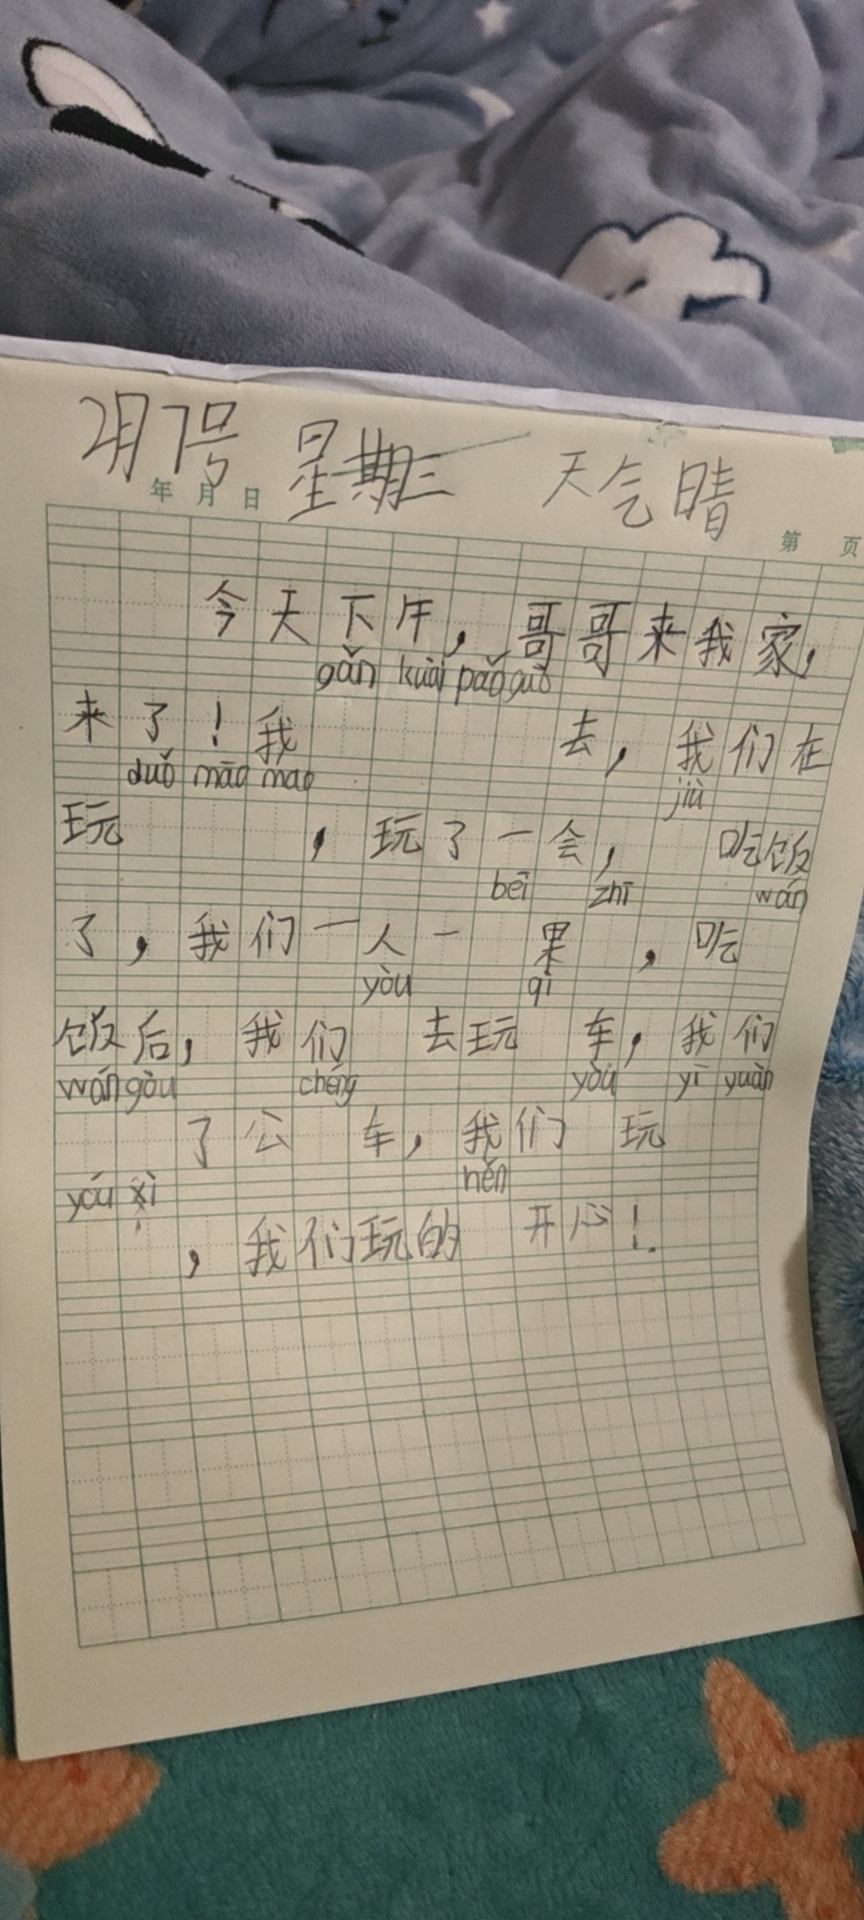 2月7号 星期三 天气晴
年 月 日
第 页
今天下午，哥哥来我家，
gǎn kuài pǎo guò
来了！我 去，我们在
duǒ māo mao jiù
玩 ，玩了一会， 吃饭
bēi zhī wán
了，我们一人一 果 ，吃
yòu qì
饭后，我们 去玩 车，我们
wán gòu chéng yòu yì yuàn
了公 车，我们 玩
yóu xì hěn
，我们玩的 开心！